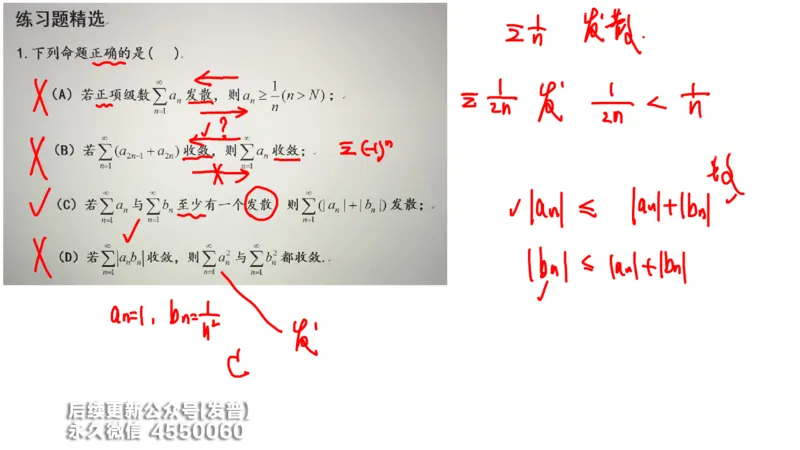 练习题精选
1.下列命题正确的是( ).
(A) 若正项级数 ∑_{n=1}^{∞} a_n 发散，则 a_n ≥ 1/n (n > N)；
✓?
(B) 若 ∑_{n=1}^{∞} (a_{2n-1} + a_{2n}) 收敛，则 ∑_{n=1}^{∞} a_n 收敛；
(C) 若 ∑_{n=1}^{∞} a_n 与 ∑_{n=1}^{∞} b_n 至少有一个发散 则 ∑_{n=1}^{∞} (|a_n| + |b_n|) 发散；
(D) 若 ∑_{n=1}^{∞} |a_n b_n| 收敛，则 ∑_{n=1}^{∞} a_n^2 与 ∑_{n=1}^{∞} b_n^2 都收敛.
an=1, bn=1/n²
发
C
∑ 1/n 发散.
∑ 1/2n 发 1/2n < 1/n
∑(-1)^n
收
|an| ≤ |an|+|bn|
|bn| ≤ |an|+|bn|
后续更新公众号[发普]
永久微信 4550060